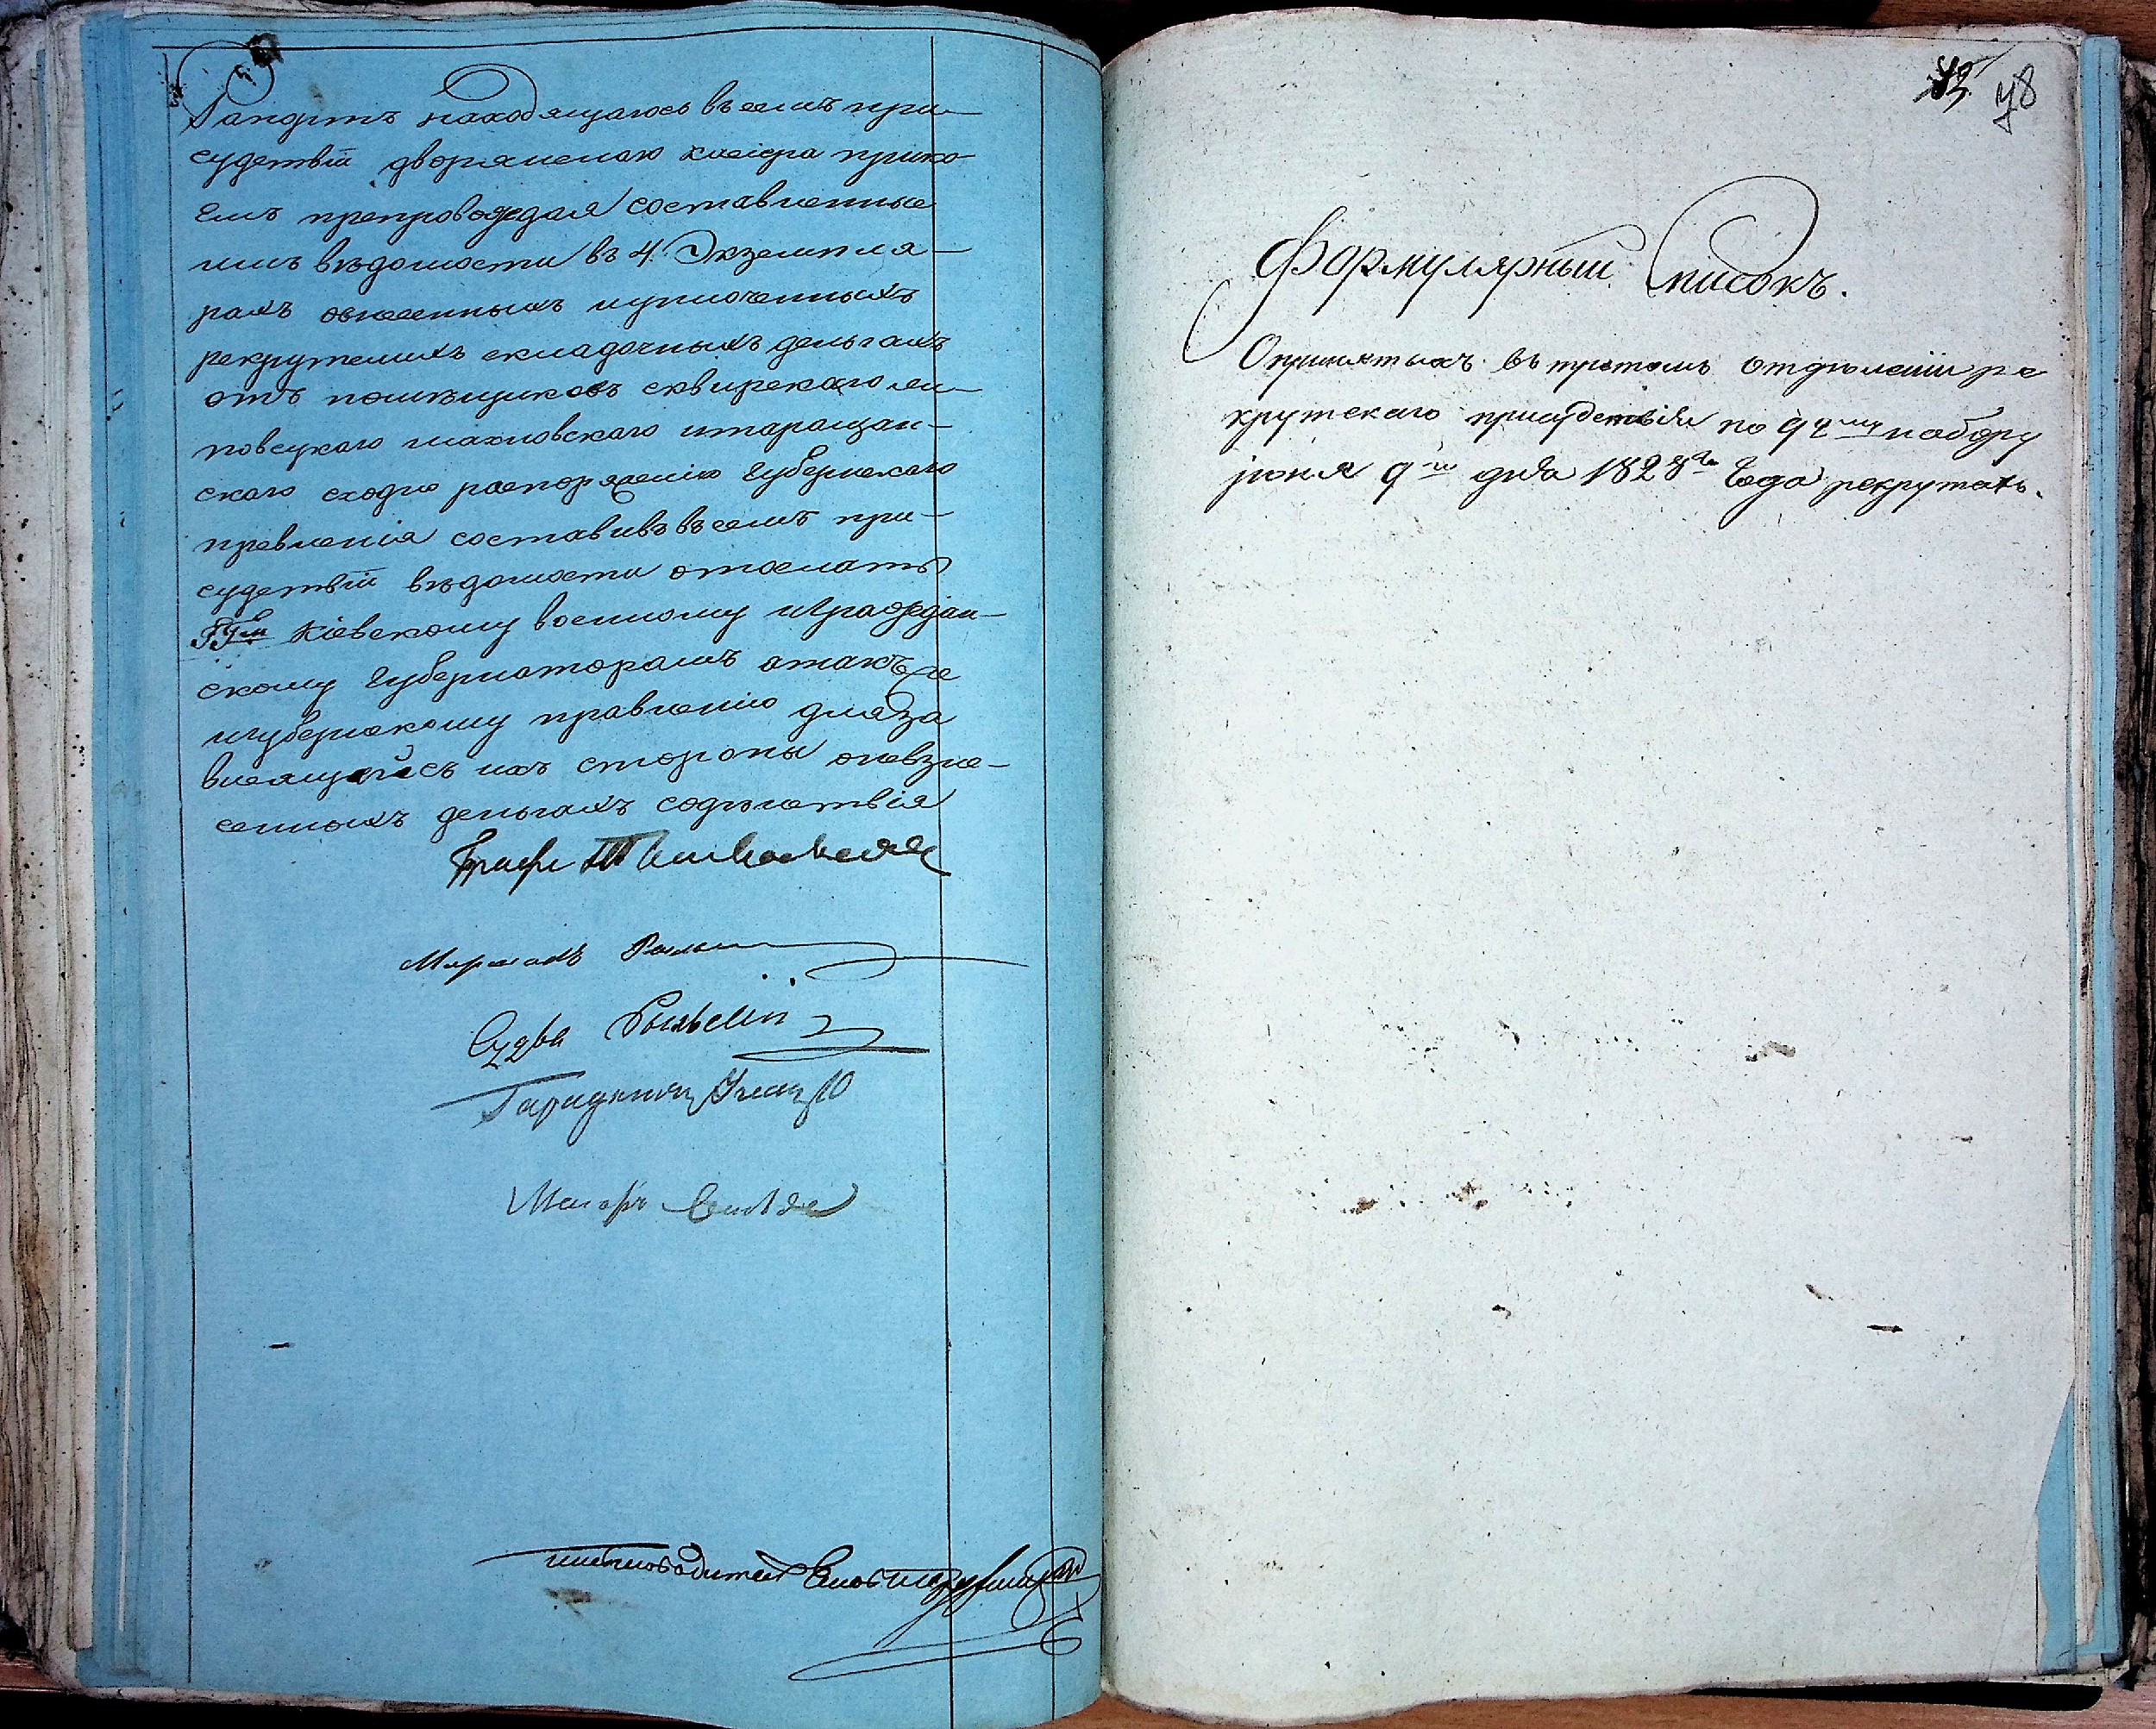 Рапортъ находящагось въ семъ при-
судствіи дворянскаю касіера прико-
емъ препровождая составленные
имъ вѣдомости въ 4. Экземпля-
рахъ овнесенныхъ
рекрутскихъ складочныхъ деньгахъ
отъ помѣщиковъ сквирскаго ли-
повецкаго махновскаго итаращан-
скаго сходно распоряженію Губернскаго
правленія составивъ въ семъ при-
судствіи вѣдомости отослать
Кіевскому военному играждан-
скому Губернаторамъ атакъ же
игубернскому правленію длѧза
висящейсь ихъ стороны оневзне-
сенныхъ деньгахъ содѣйствія
Графъ
Маршалъ
Судья
Маіоръ
48
Формулярный Списокъ.
Опринятыхъ въ третомъ отдѣленіи ре
крутскаго присудствія по 92му набору
іюня 9го дня 1828го Года рекрутахъ.